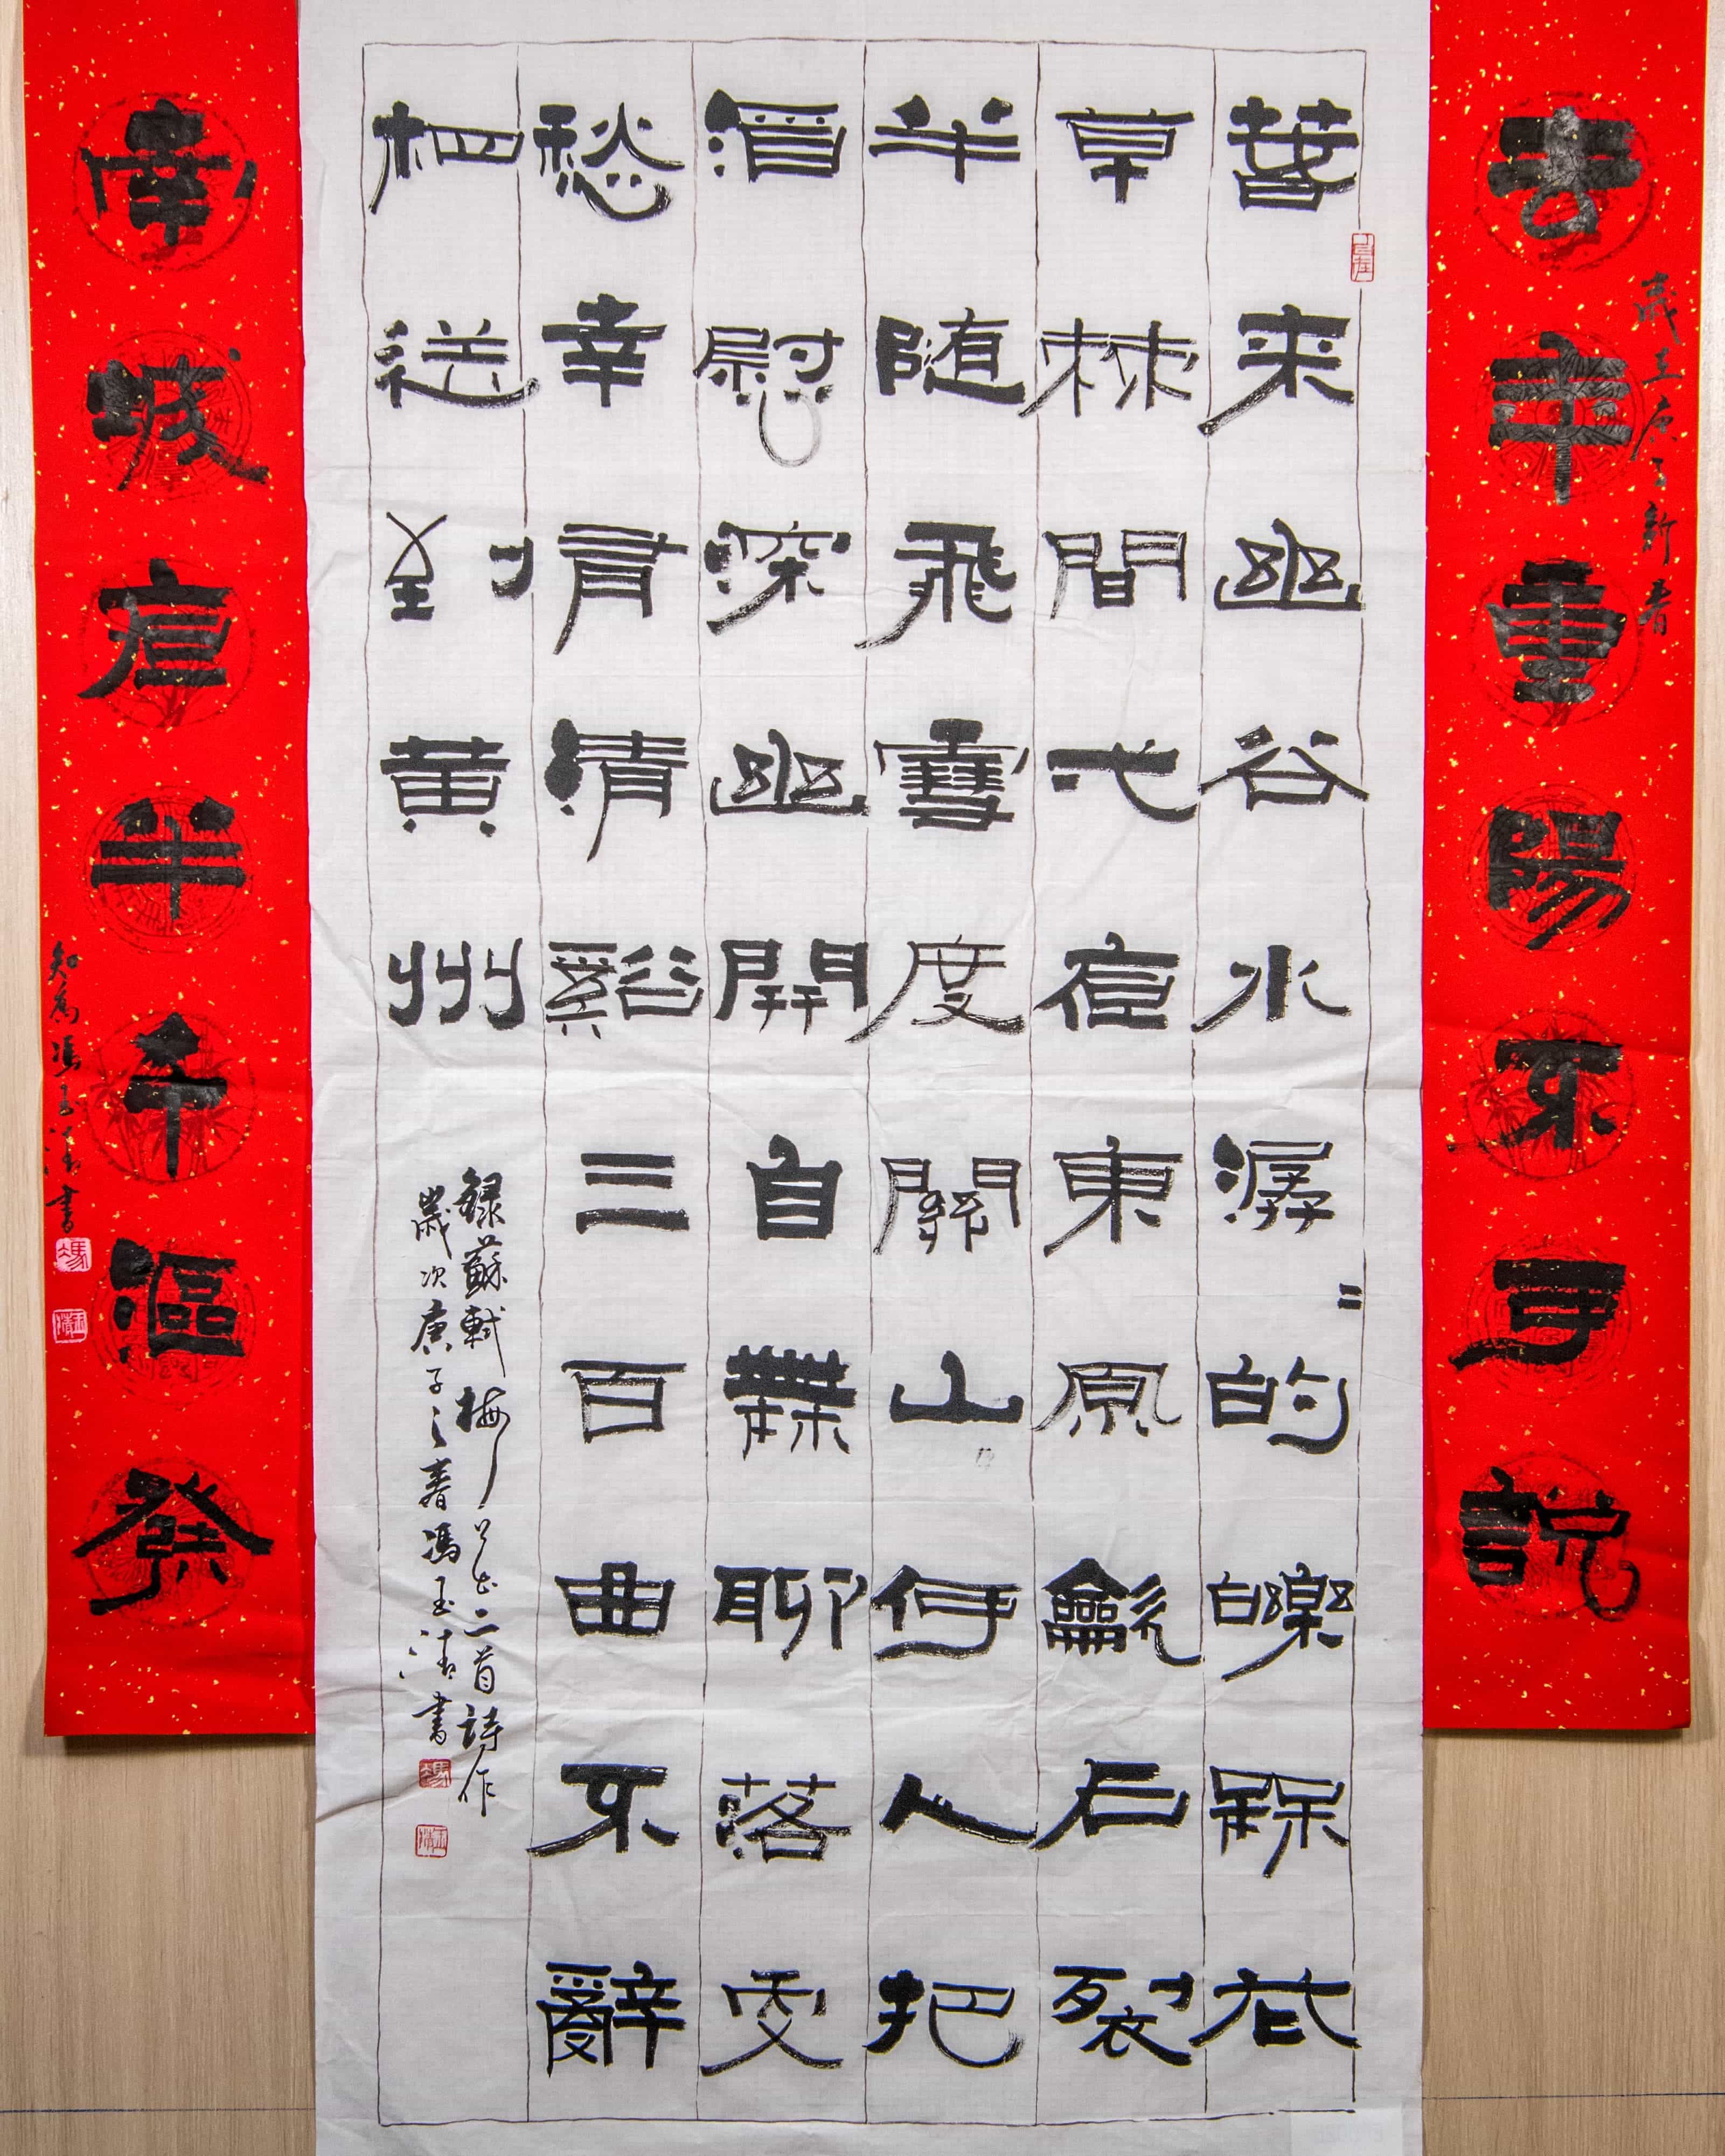 去年重陽不可說
歲在庚子新春
春来幽谷水潺〻的皪楳花
草棘間一夜東風龡石裂
半随飛雪度關山何人把
酒慰深幽開自無聊落更
愁幸有清谿三百曲不辭
相送到黃州
錄蘇軾梅花二首詩作
歲次庚子之春馮玉清書
南城夜半千漚發
馮玉清書